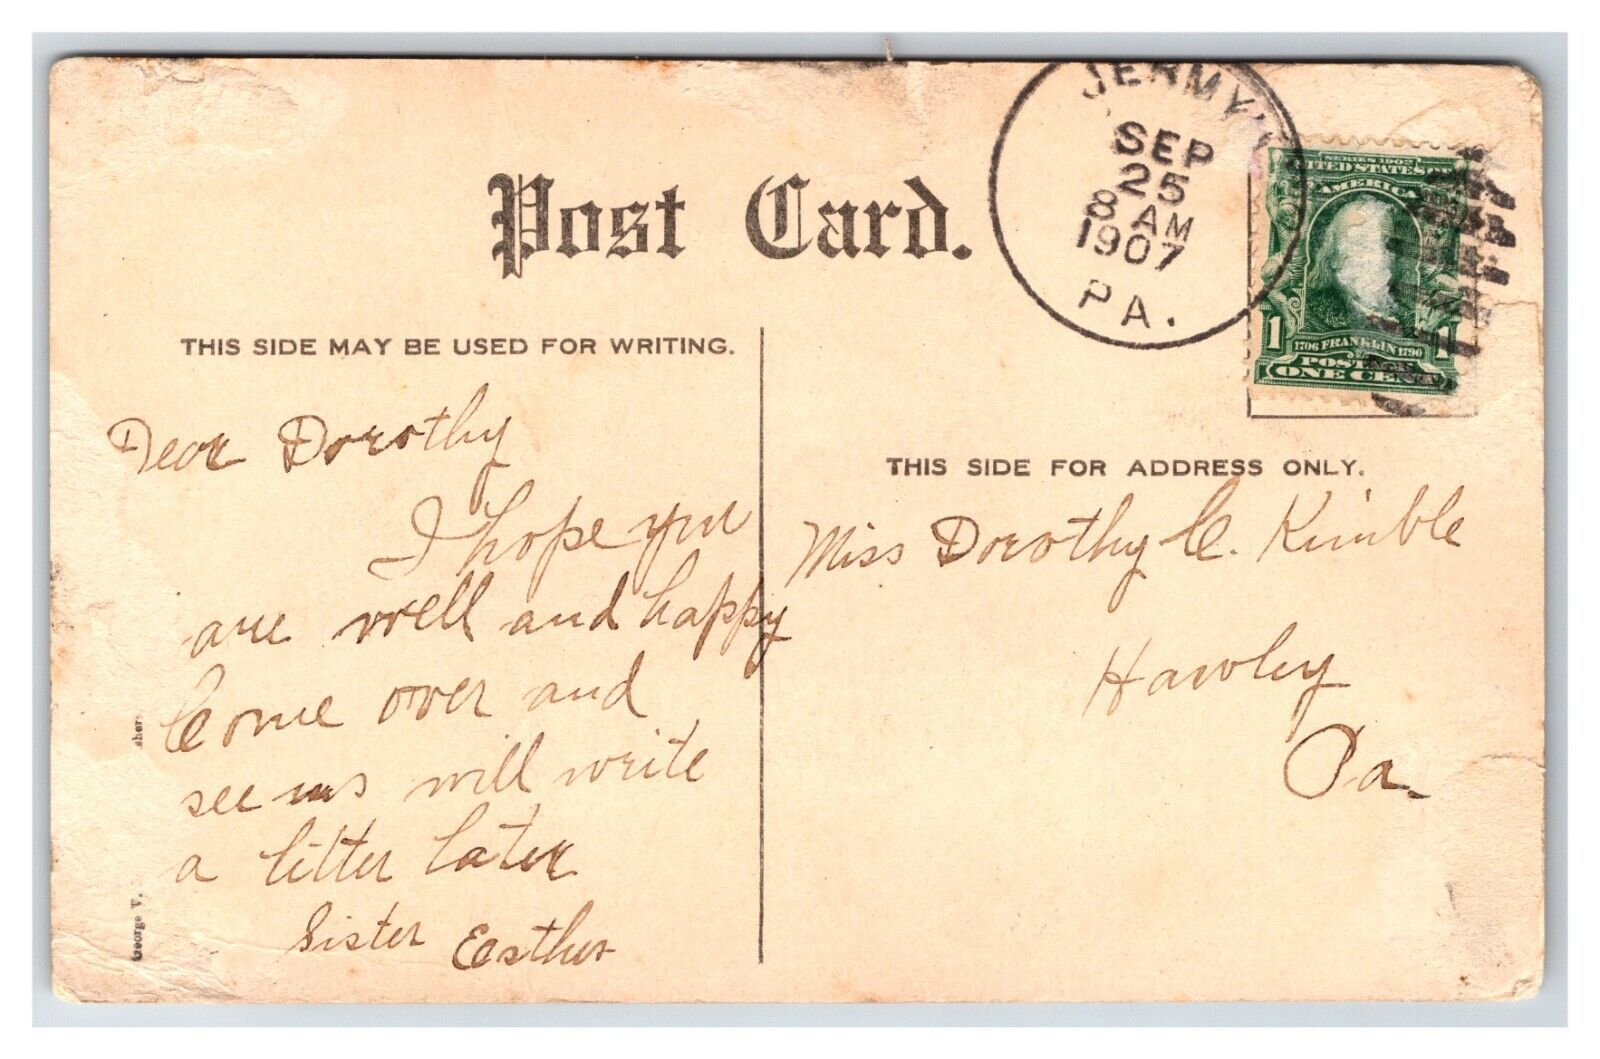 Post Card.
JERMYN
SEP
25
8 AM
1907
PA.
SERIES 1902
UNITED STATES
AMERICA
1 1
1706 FRANKLIN 1790
POSTAGE
ONE CENT
THIS SIDE MAY BE USED FOR WRITING.
THIS SIDE FOR ADDRESS ONLY.
Dear Dorothy
I hope you
are well and happy
Come over and
see us will write
a letter later
Sister Esther
Miss Dorothy C. Kimble
Hawley
Pa.
George V.